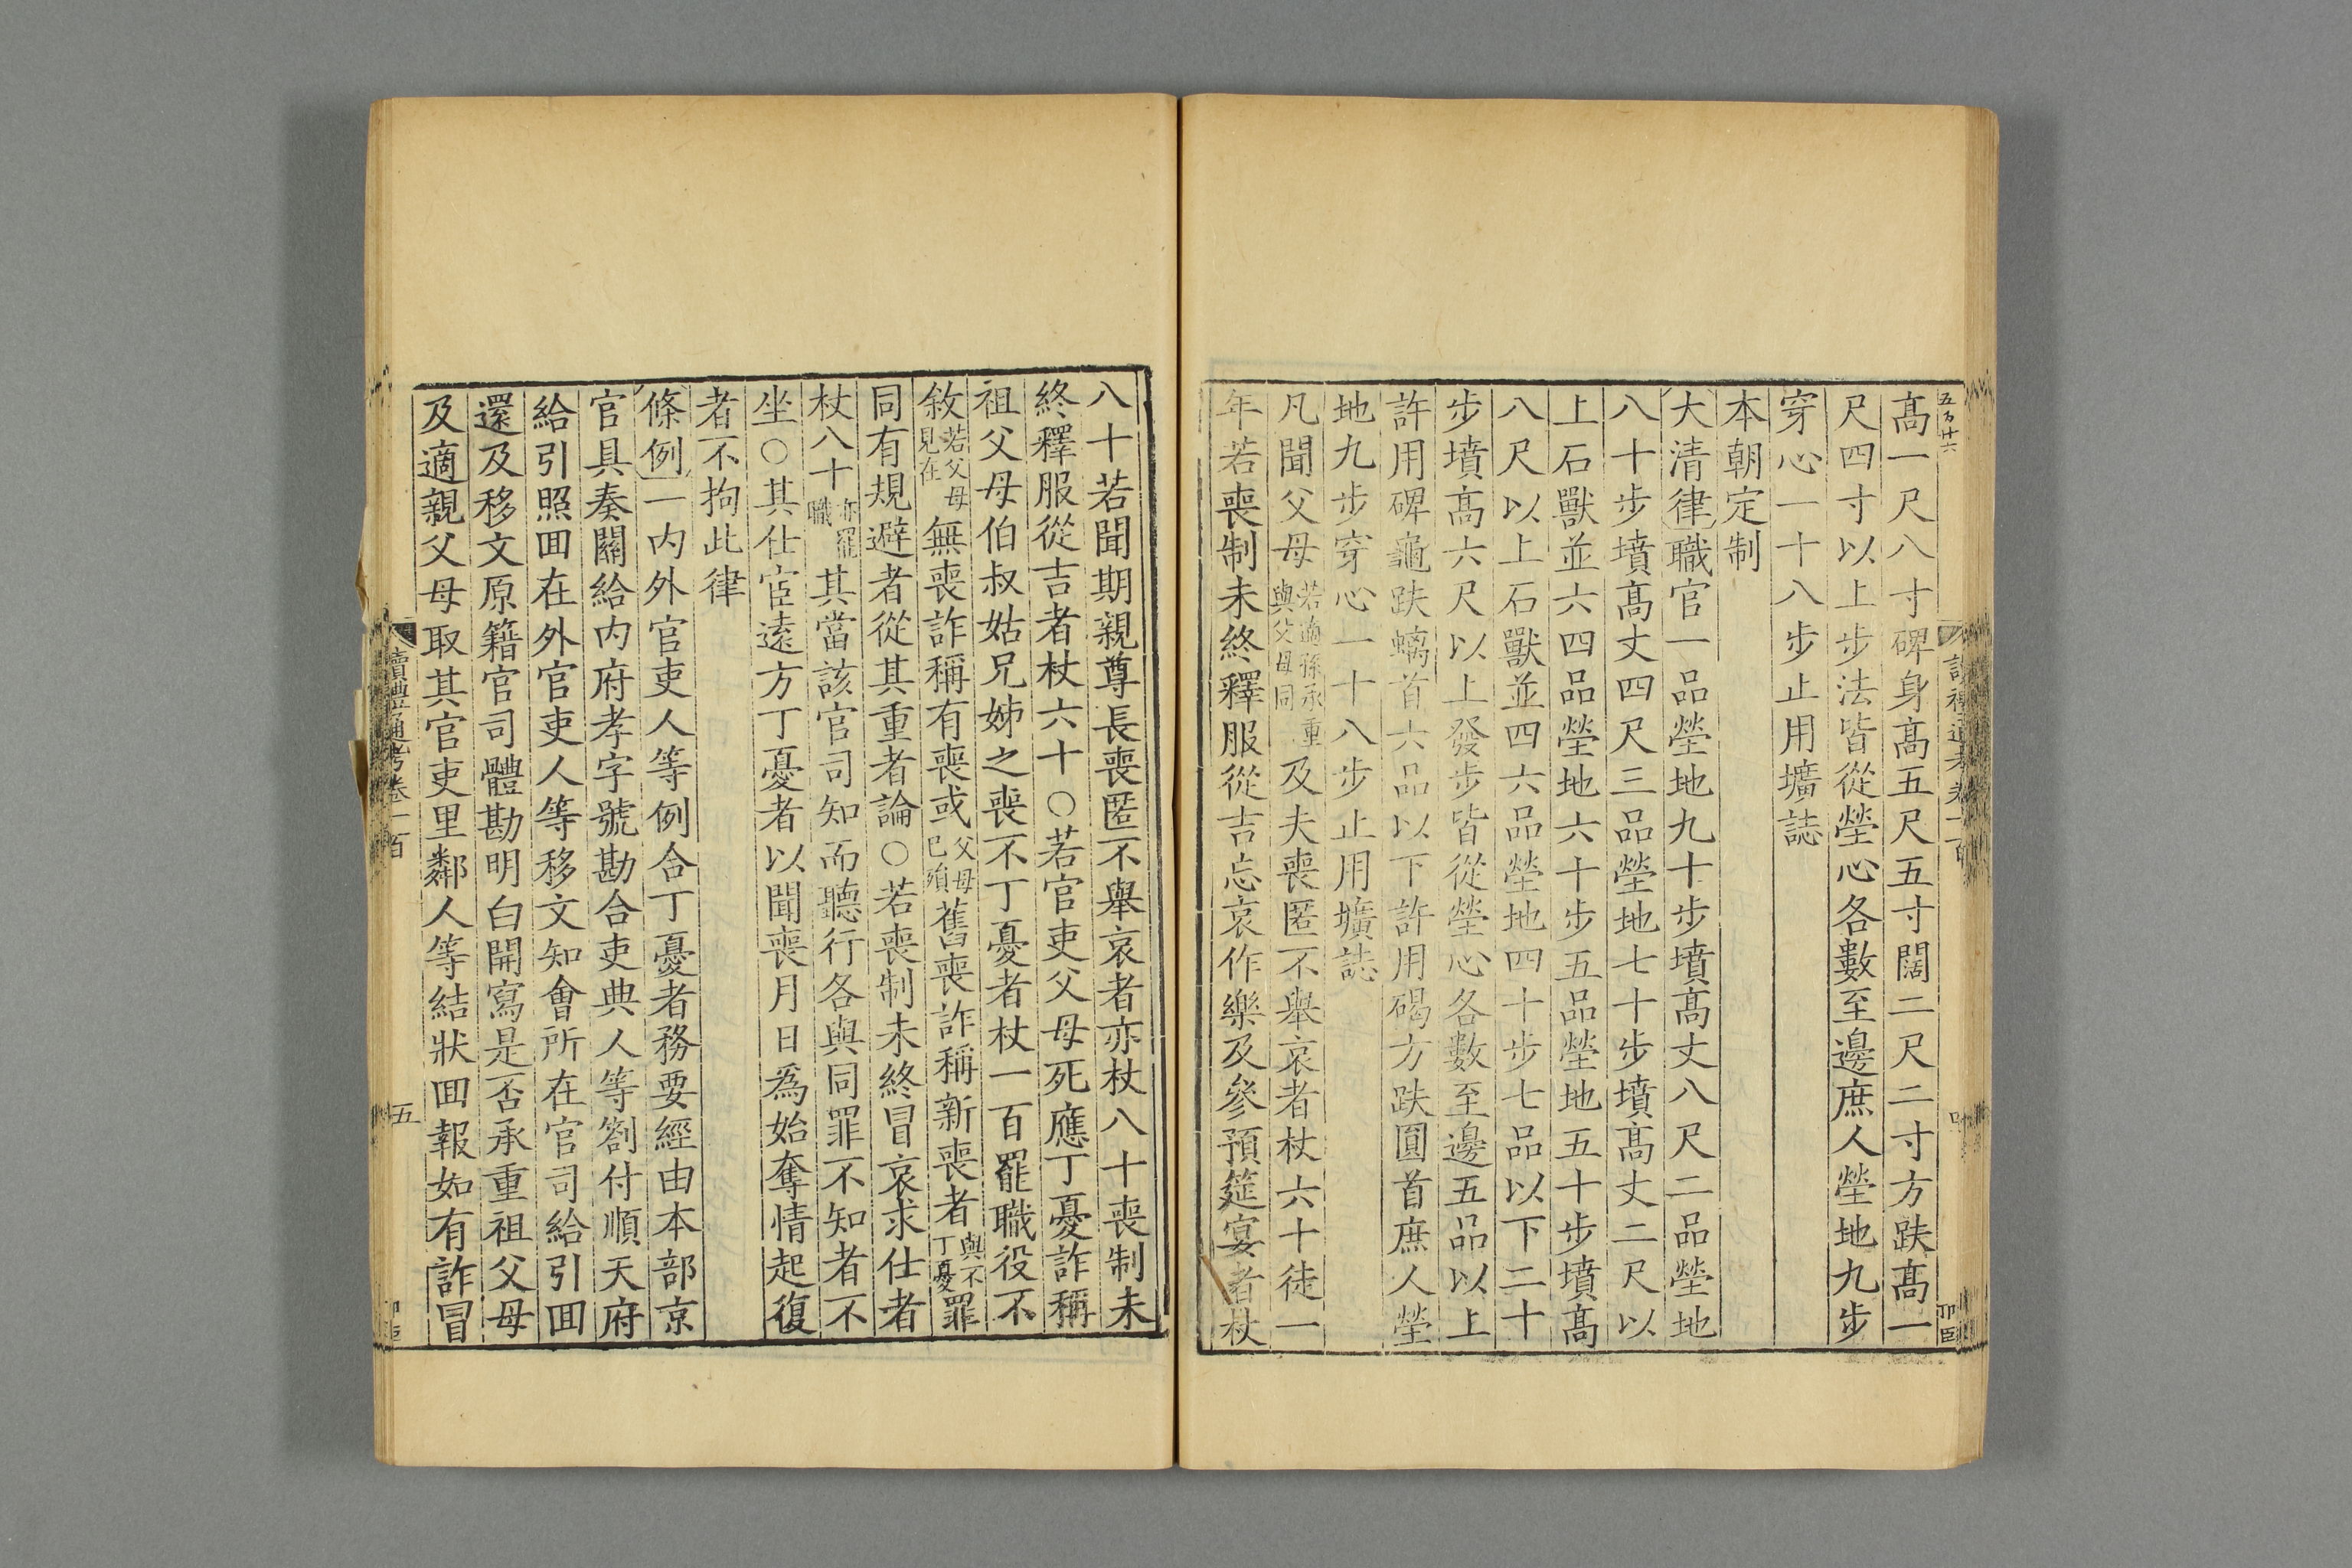 高一尺八寸碑身高五尺五寸闊二尺二寸方趺高一
尺四寸以上步法皆從塋心各數至邊庶人塋地九步
穿心一十八步止用壙誌
本朝定制
大清律職官一品塋地九十步墳高丈八尺二品塋地
八十步墳高丈四尺三品塋地七十步墳高丈二尺以
上石獸並六四品塋地六十步五品塋地五十步墳高
八尺以上石獸並四六品塋地四十步七品以下二十
步墳高六尺以上發步皆從塋心各數至邊五品以上
許用碑龜趺螭首六品以下許用碣方趺圓首庶人塋
地九步穿心一十八步止用壙誌
凡聞父母若適孫承重與父母同及夫喪匿不舉哀者杖六十徒一
年若喪制未終釋服從吉忘哀作樂及參預筵宴者杖
八十若聞期親尊長喪匿不舉哀者亦杖八十喪制未
終釋服從吉者杖六十○若官吏父母死應丁憂詐稱
祖父母伯叔姑兄姊之喪不丁憂者杖一百罷職役不
敘若父母見在無喪詐稱有喪或父母已殯舊喪詐稱新喪者與不丁憂罪
同有規避者從其重者論○若喪制未終冒哀求仕者
杖八十亦罷職其當該官司知而聽行各與同罪不知者不
坐○其仕宦遠方丁憂者以聞喪月日為始奪情起復
者不拘此律
條例一内外官吏人等例合丁憂者務要經由本部京
官具奏關給内府孝字號勘合吏典人等劄付順天府
給引照囬在外官吏人等移文知會所在官司給引囬
還及移文原籍官司體勘明白開寫是否承重祖父母
及適親父母取其官吏里鄰人等結狀囬報如有詐冒
讀禮通考卷一百
五